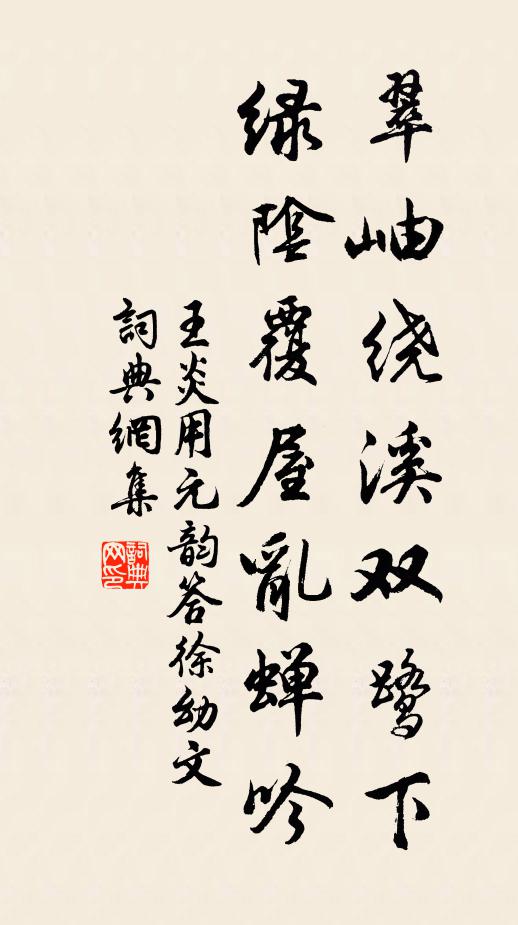 翠岫绕溪双鹭下
绿阴覆屋亂蝉吟
王炎用元韵答徐幼文
詞典網集
詞典网印